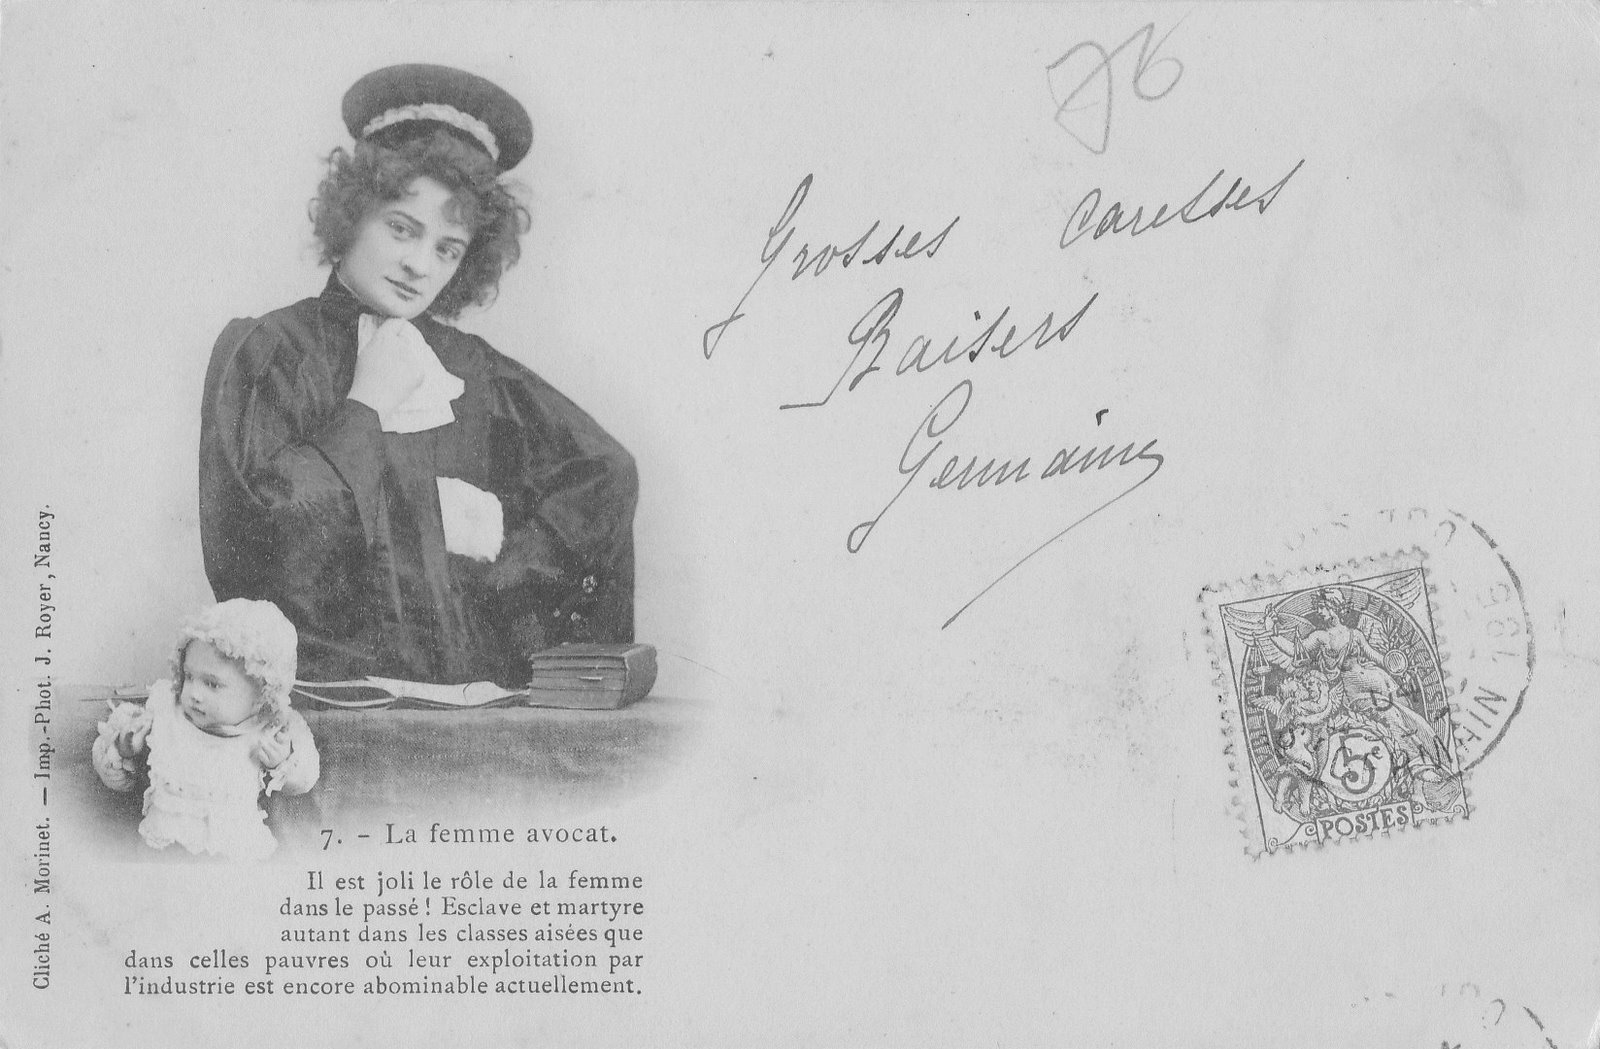 76
Grosses caresses
Baisers
Germaine
RÉPUBLIQUE FRANÇAISE
5c
POSTES
7. - La femme avocat.
Il est joli le rôle de la femme
dans le passé ! Esclave et martyre
autant dans les classes aisées que
dans celles pauvres où leur exploitation par
l'industrie est encore abominable actuellement.
Cliché A. Morinet. — Imp.-Phot. J. Royer, Nancy.